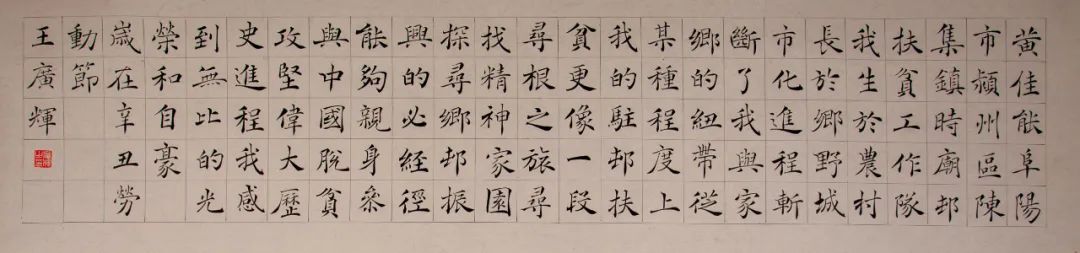 黄佳能阜陽
市潁州區陳
集鎮時廟邨
扶貧工作隊
我生於農村
長於鄉野城
市化進程斬
斷了我與家
鄉的紐帶從
某種程度上
我的駐邨扶
貧更像一段
尋根之旅尋
找精神家園
探尋鄉邨振
興的必經徑
能夠親身參
與中國脫貧
攻堅偉大歷
史進程我感
到無比的光
榮和自豪
歲在辛丑勞
動節
王廣輝